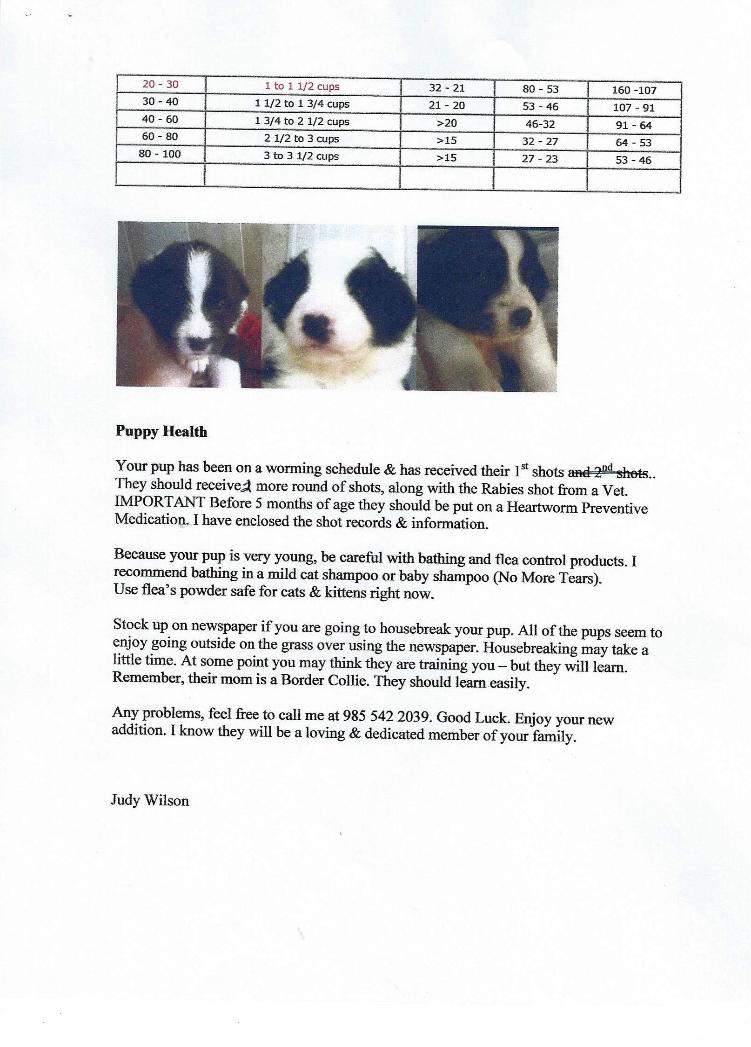 20 - 30 1 to 1 1/2 cups 32 - 21 80 - 53 160 -107
30 - 40 1 1/2 to 1 3/4 cups 21 - 20 53 - 46 107 - 91
40 - 60 1 3/4 to 2 1/2 cups >20 46-32 91 - 64
60 - 80 2 1/2 to 3 cups >15 32 - 27 64 - 53
80 - 100 3 to 3 1/2 cups >15 27 - 23 53 - 46
Puppy Health
Your pup has been on a worming schedule & has received their 1st shots and 2nd shots..
They should receive 2 more round of shots, along with the Rabies shot from a Vet.
IMPORTANT Before 5 months of age they should be put on a Heartworm Preventive
Medication. I have enclosed the shot records & information.
Because your pup is very young, be careful with bathing and flea control products. I
recommend bathing in a mild cat shampoo or baby shampoo (No More Tears).
Use flea's powder safe for cats & kittens right now.
Stock up on newspaper if you are going to housebreak your pup. All of the pups seem to
enjoy going outside on the grass over using the newspaper. Housebreaking may take a
little time. At some point you may think they are training you – but they will learn.
Remember, their mom is a Border Collie. They should learn easily.
Any problems, feel free to call me at 985 542 2039. Good Luck. Enjoy your new
addition. I know they will be a loving & dedicated member of your family.
Judy Wilson